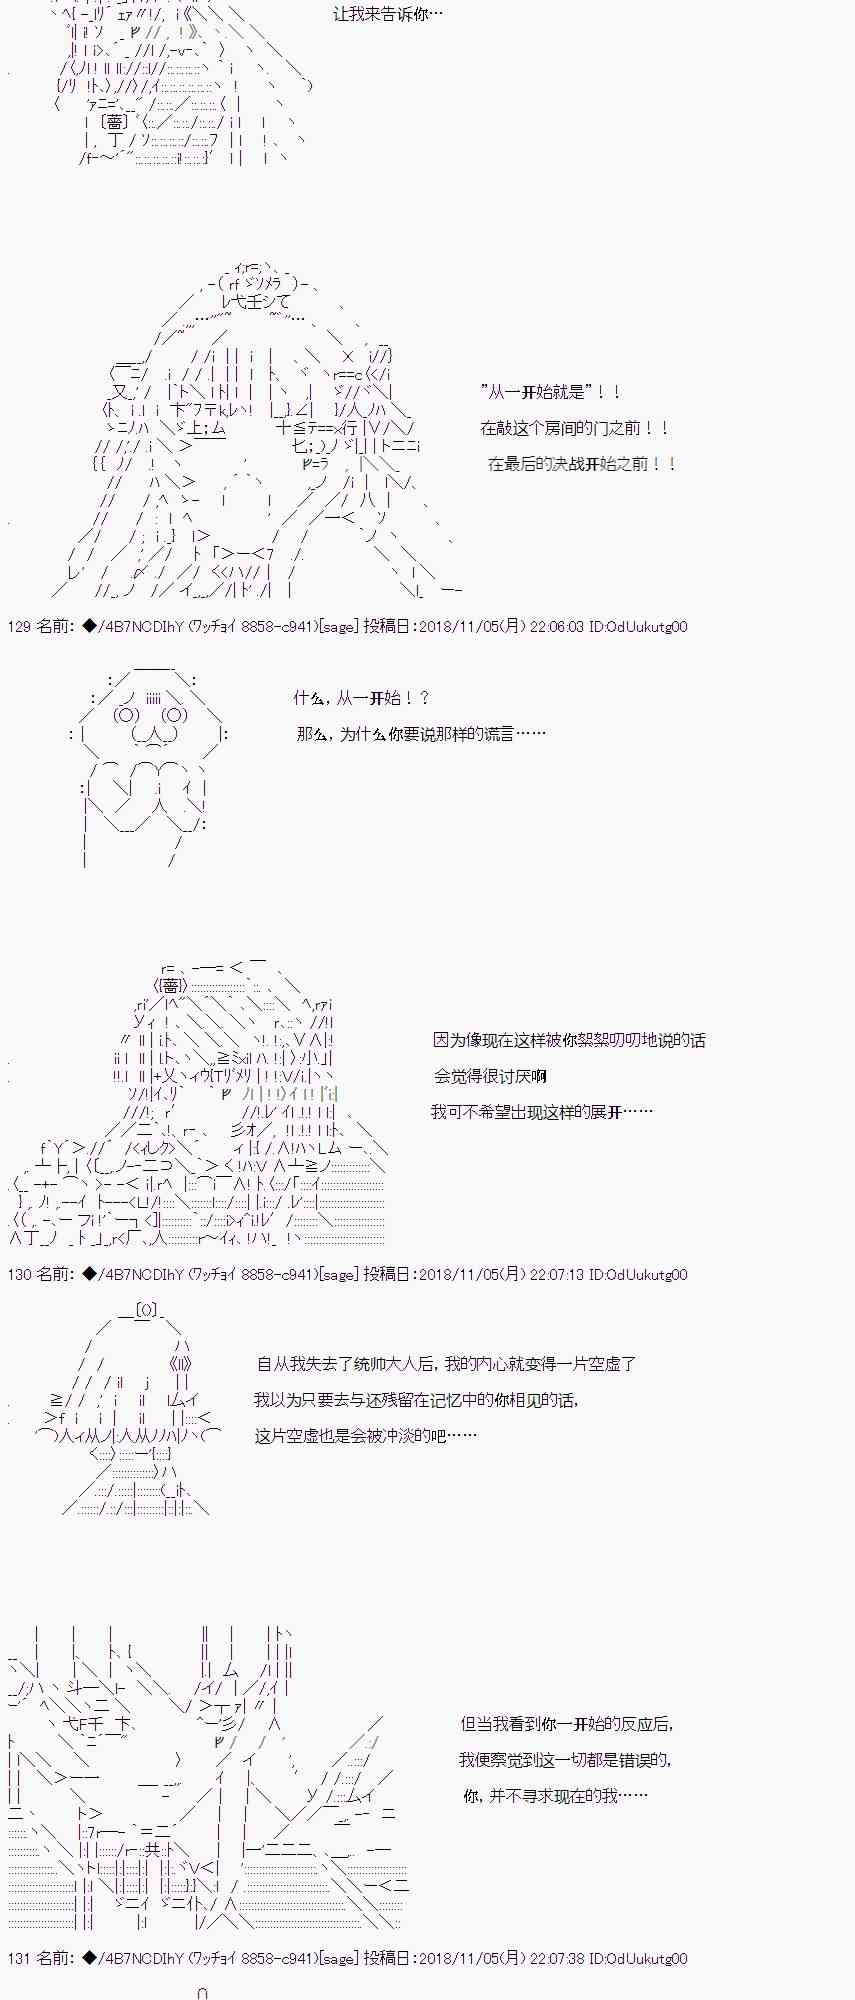 让我来告诉你…
”从一开始就是”！！
在敲这个房间的门之前！！
在最后的决战开始之前！！
129 名前：◆/4B7NCDIhY (ワッチョイ 8858-c941)[sage] 投稿日：2018/11/05(月) 22:06:03 ID:OdUukutg00
什么，从一开始！？
那么，为什么你要说那样的谎言……
因为像现在这样被你絮絮叨叨地说的话
会觉得很讨厌啊
我可不希望出现这样的展开……
130 名前：◆/4B7NCDIhY (ワッチョイ 8858-c941)[sage] 投稿日：2018/11/05(月) 22:07:13 ID:OdUukutg00
自从我失去了统帅大人后，我的内心就变得一片空虚了
我以为只要去与还残留在记忆中的你相见的话，
这片空虚也是会被冲淡的吧……
但当我看到你一开始的反应后，
我便察觉到这一切都是错误的，
你，并不寻求现在的我……
131 名前：◆/4B7NCDIhY (ワッチョイ 8858-c941)[sage] 投稿日：2018/11/05(月) 22:07:38 ID:OdUukutg00